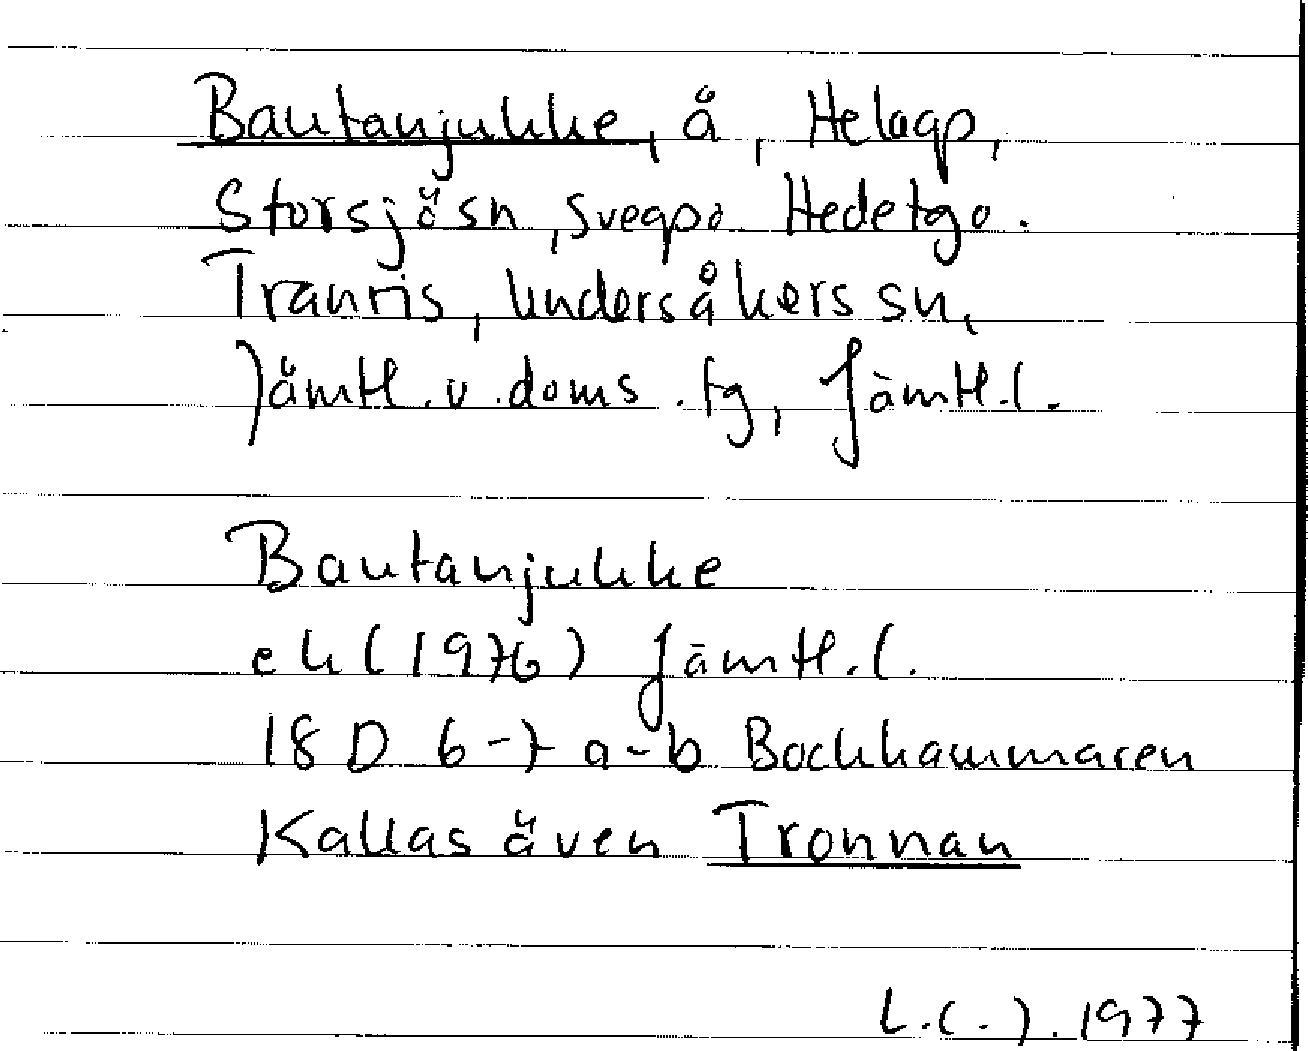 Bautanjukke, å, Helagp,
Storsjösn, Svegpo. Hedetgo.
Tranris, Undersåkers sn,
Jämtl. v. doms. tg, Jämtl.l.
Bautanjukke
ek (1976) Jämtl.l.
18 D 6-7 a-b Bockhammaren
Kallas även Tronnan
L.C.J. 1977